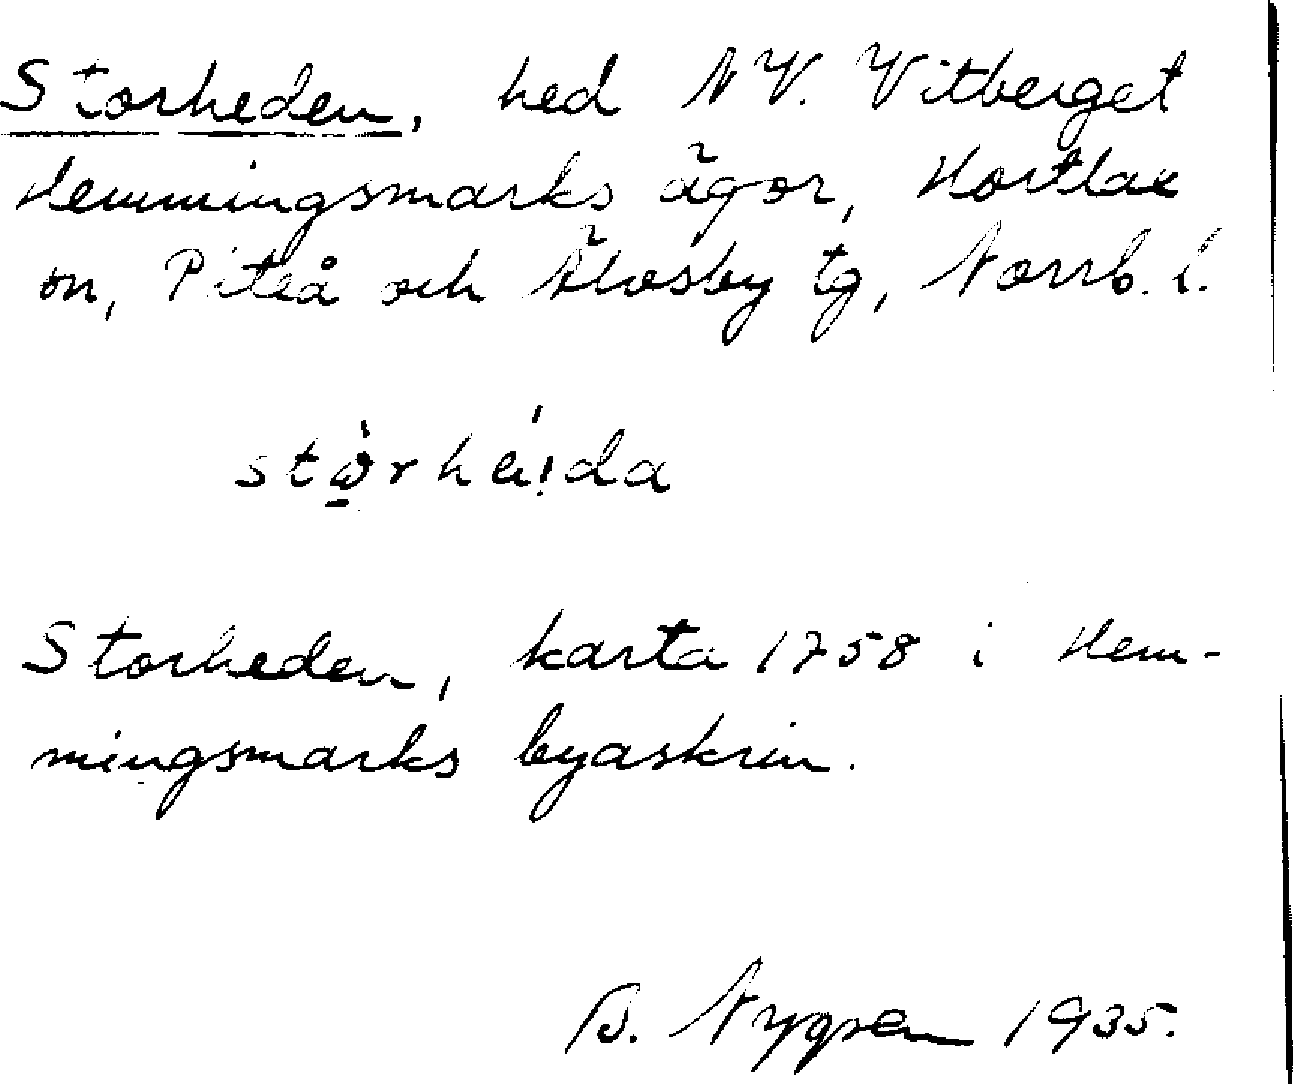 Storheden, hed NV. Vitberget
Hemmingsmarks ägor, Hortlax
sn, Piteå och Älvsby tg, Norrb. l.
Storheden, karta 1758 i Hem-
mingsmarks byaskrin.
B. Nygren 1935.